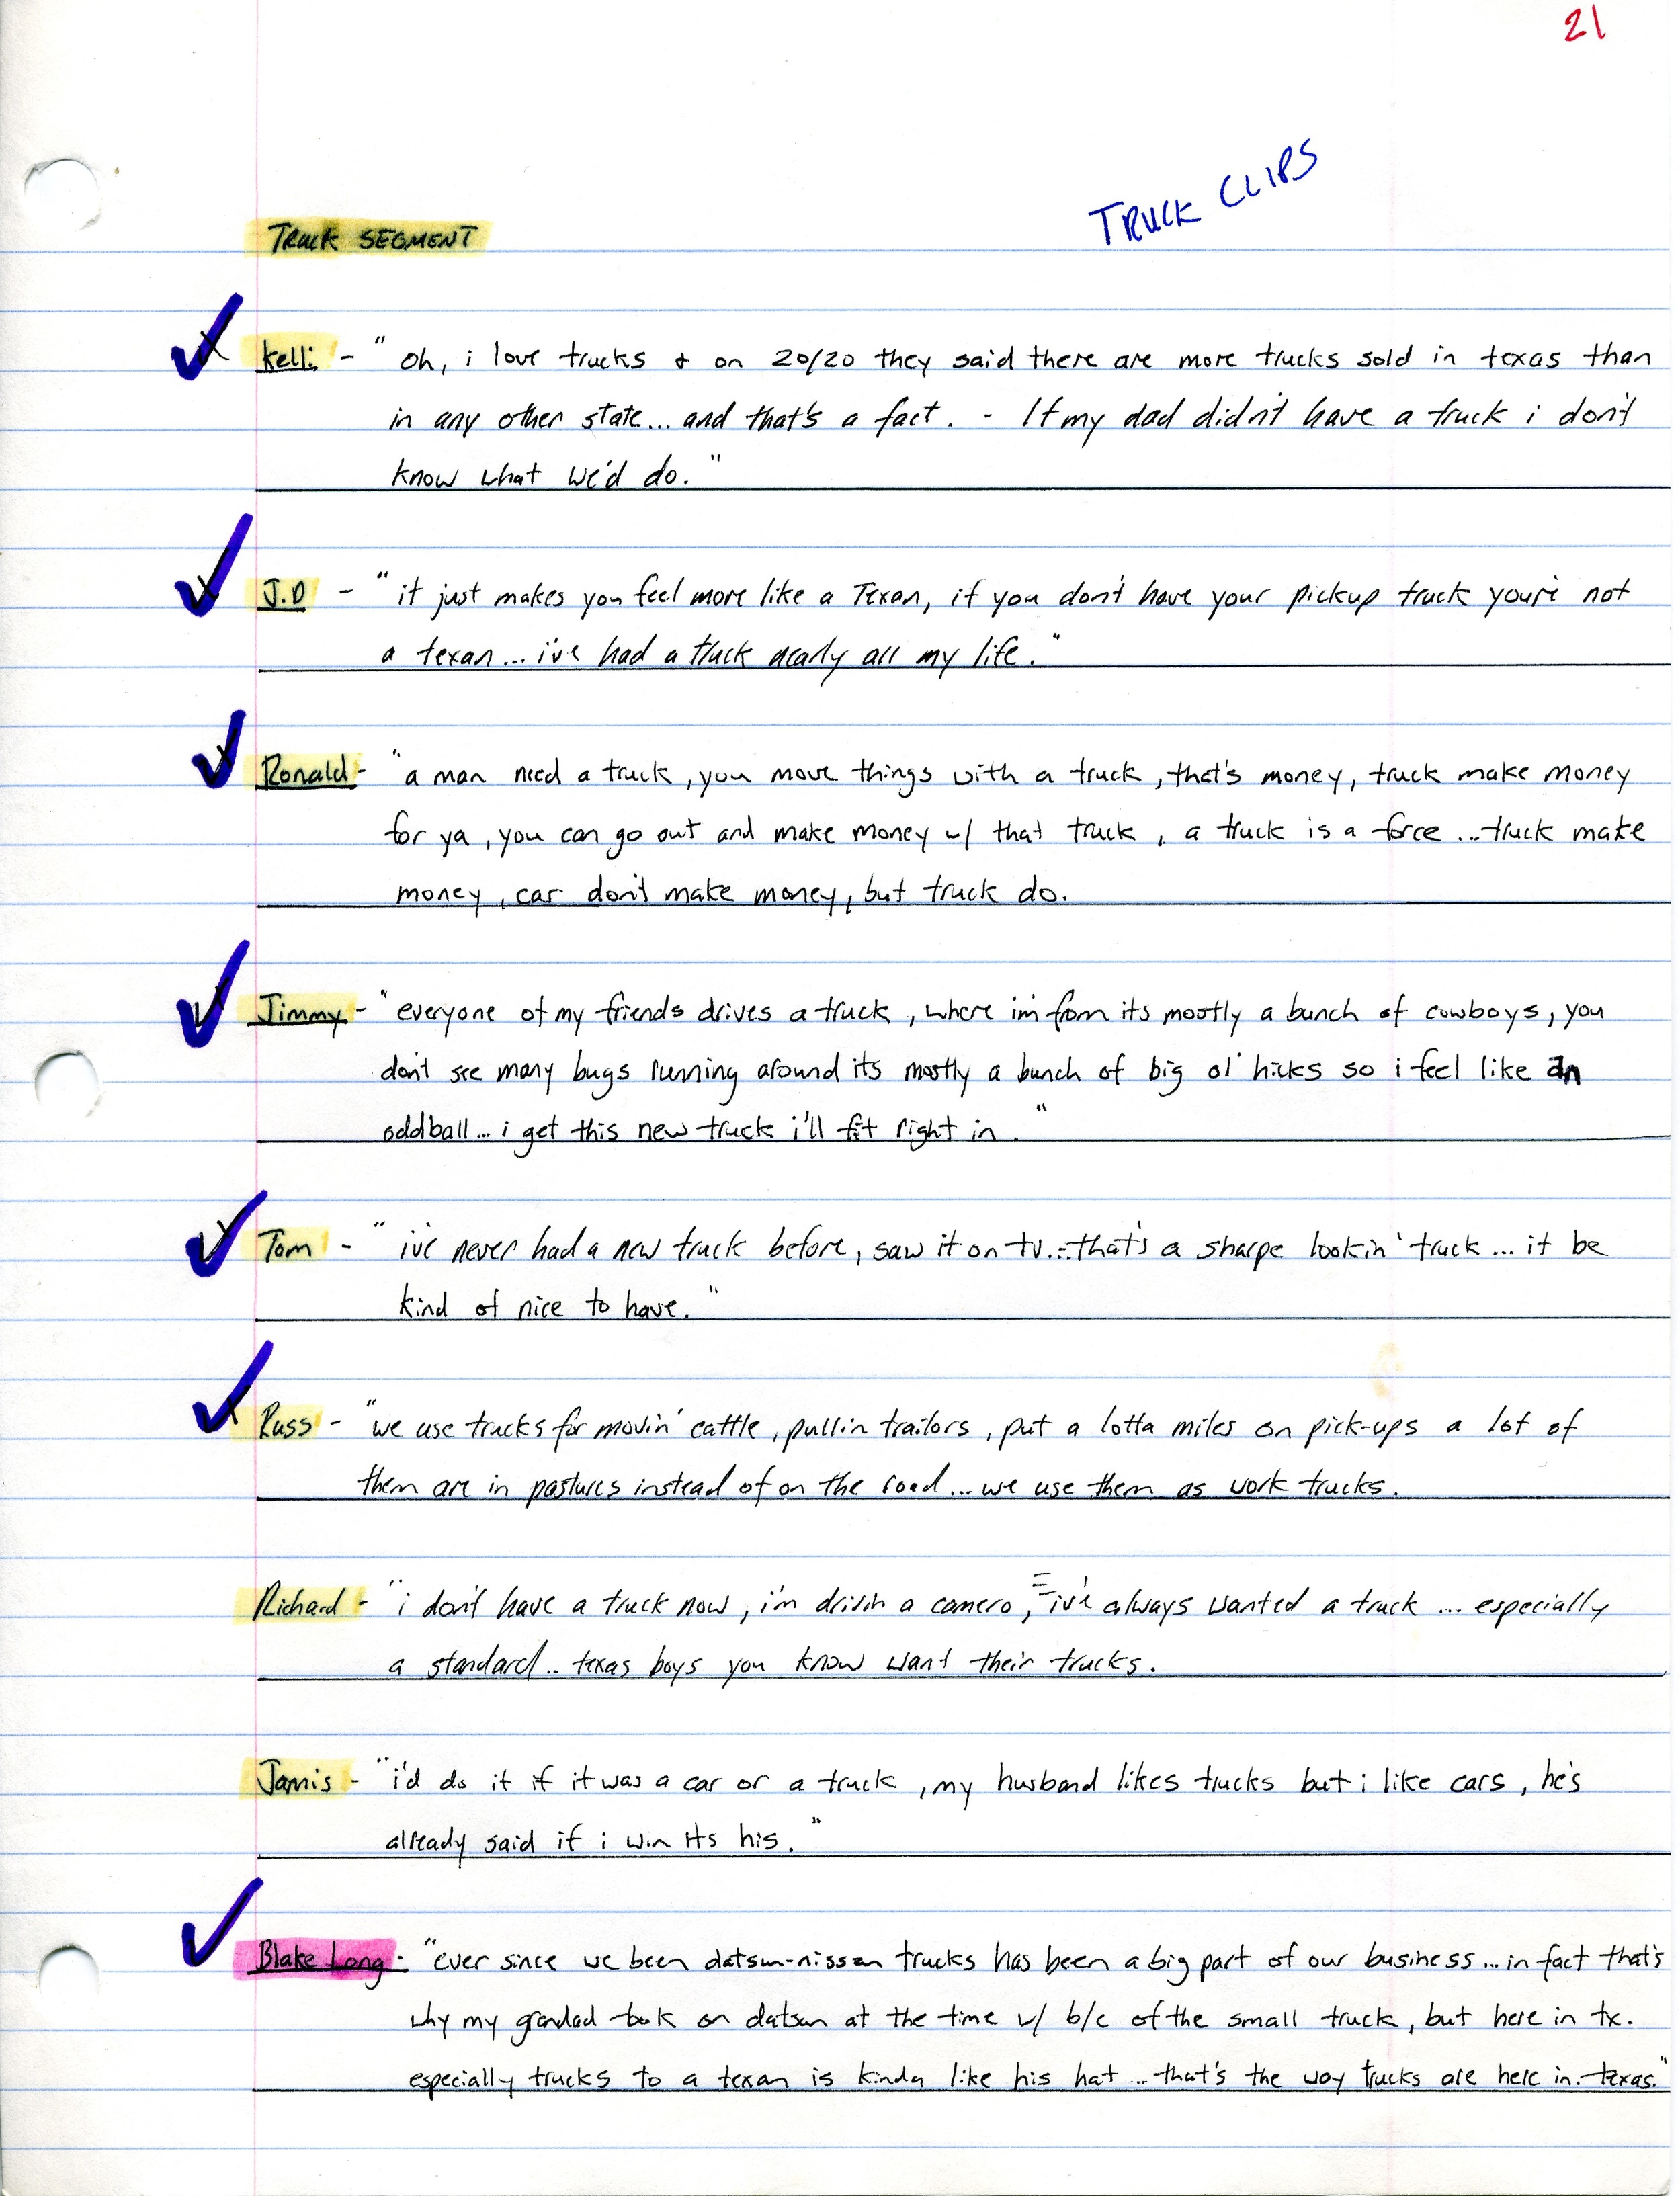 21
TRUCK CLIPS
TRUCK SEGMENT
Kelli - " oh, i love trucks + on 20/20 they said there are more trucks sold in texas than
in any other state... and that's a fact. - If my dad didn't have a truck i don't
know what we'd do. "
J.D - " it just makes you feel more like a Texan, if you don't have your pickup truck you're not
a texan... i've had a truck nearly all my life. "
Ronald - " a man need a truck, you move things with a truck, that's money, truck make money
for ya, you can go out and make money w/ that truck, a truck is a force ... truck make
money, car don't make money, but truck do.
Jimmy - " everyone of my friends drives a truck, where i'm from its mostly a bunch of cowboys, you
don't see many bugs running around its mostly a bunch of big ol' hicks so i feel like an
oddball... i get this new truck i'll fit right in. "
Tom - " i've never had a new truck before, saw it on tv... that's a sharpe lookin' truck... it be
kind of nice to have. "
Russ - " we use trucks for movin' cattle, pullin trailors, put a lotta miles on pick-ups a lot of
them are in pastures instead of on the road... we use them as work trucks.
Richard - " i don't have a truck now, i'm drivin a camero, i've always wanted a truck ... especially
a standard.. texas boys you know want their trucks.
Janis - " i'd do it if it was a car or a truck, my husband likes trucks but i like cars, he's
already said if i win its his. "
Blake Long - " ever since we been datsun-nissan trucks has been a big part of our business... in fact that's
why my grandad took on datsun at the time w/ b/c of the small truck, but here in tx.
especially trucks to a texan is kinda like his hat ... that's the way trucks are here in texas. "